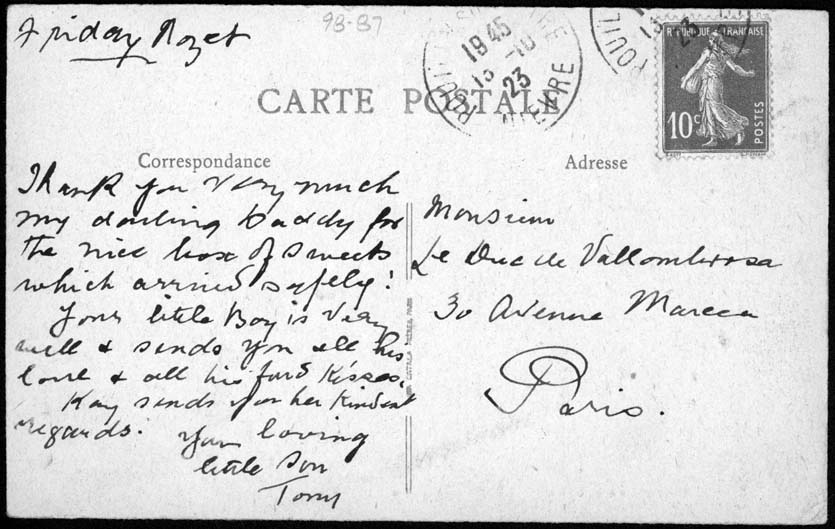 Friday Rozet
93-B7
19 45
13 -10
23
NIEVRE
POUIL
REPUBLIQUE FRANCAISE
10c
POSTES
CARTE POSTALE
Correspondance
Adresse
Thank you very much
my darling Daddy for
the nice box of sweets
which arrived safely!
Your little Boy is very
well & sends you all his
love & all his fond Kisses.
Kay sends you her Kindest
regards. Your loving
little son
Tony
Monsieur
Le Duc de Vallombrosa
30 Avenue Marceau
Paris.